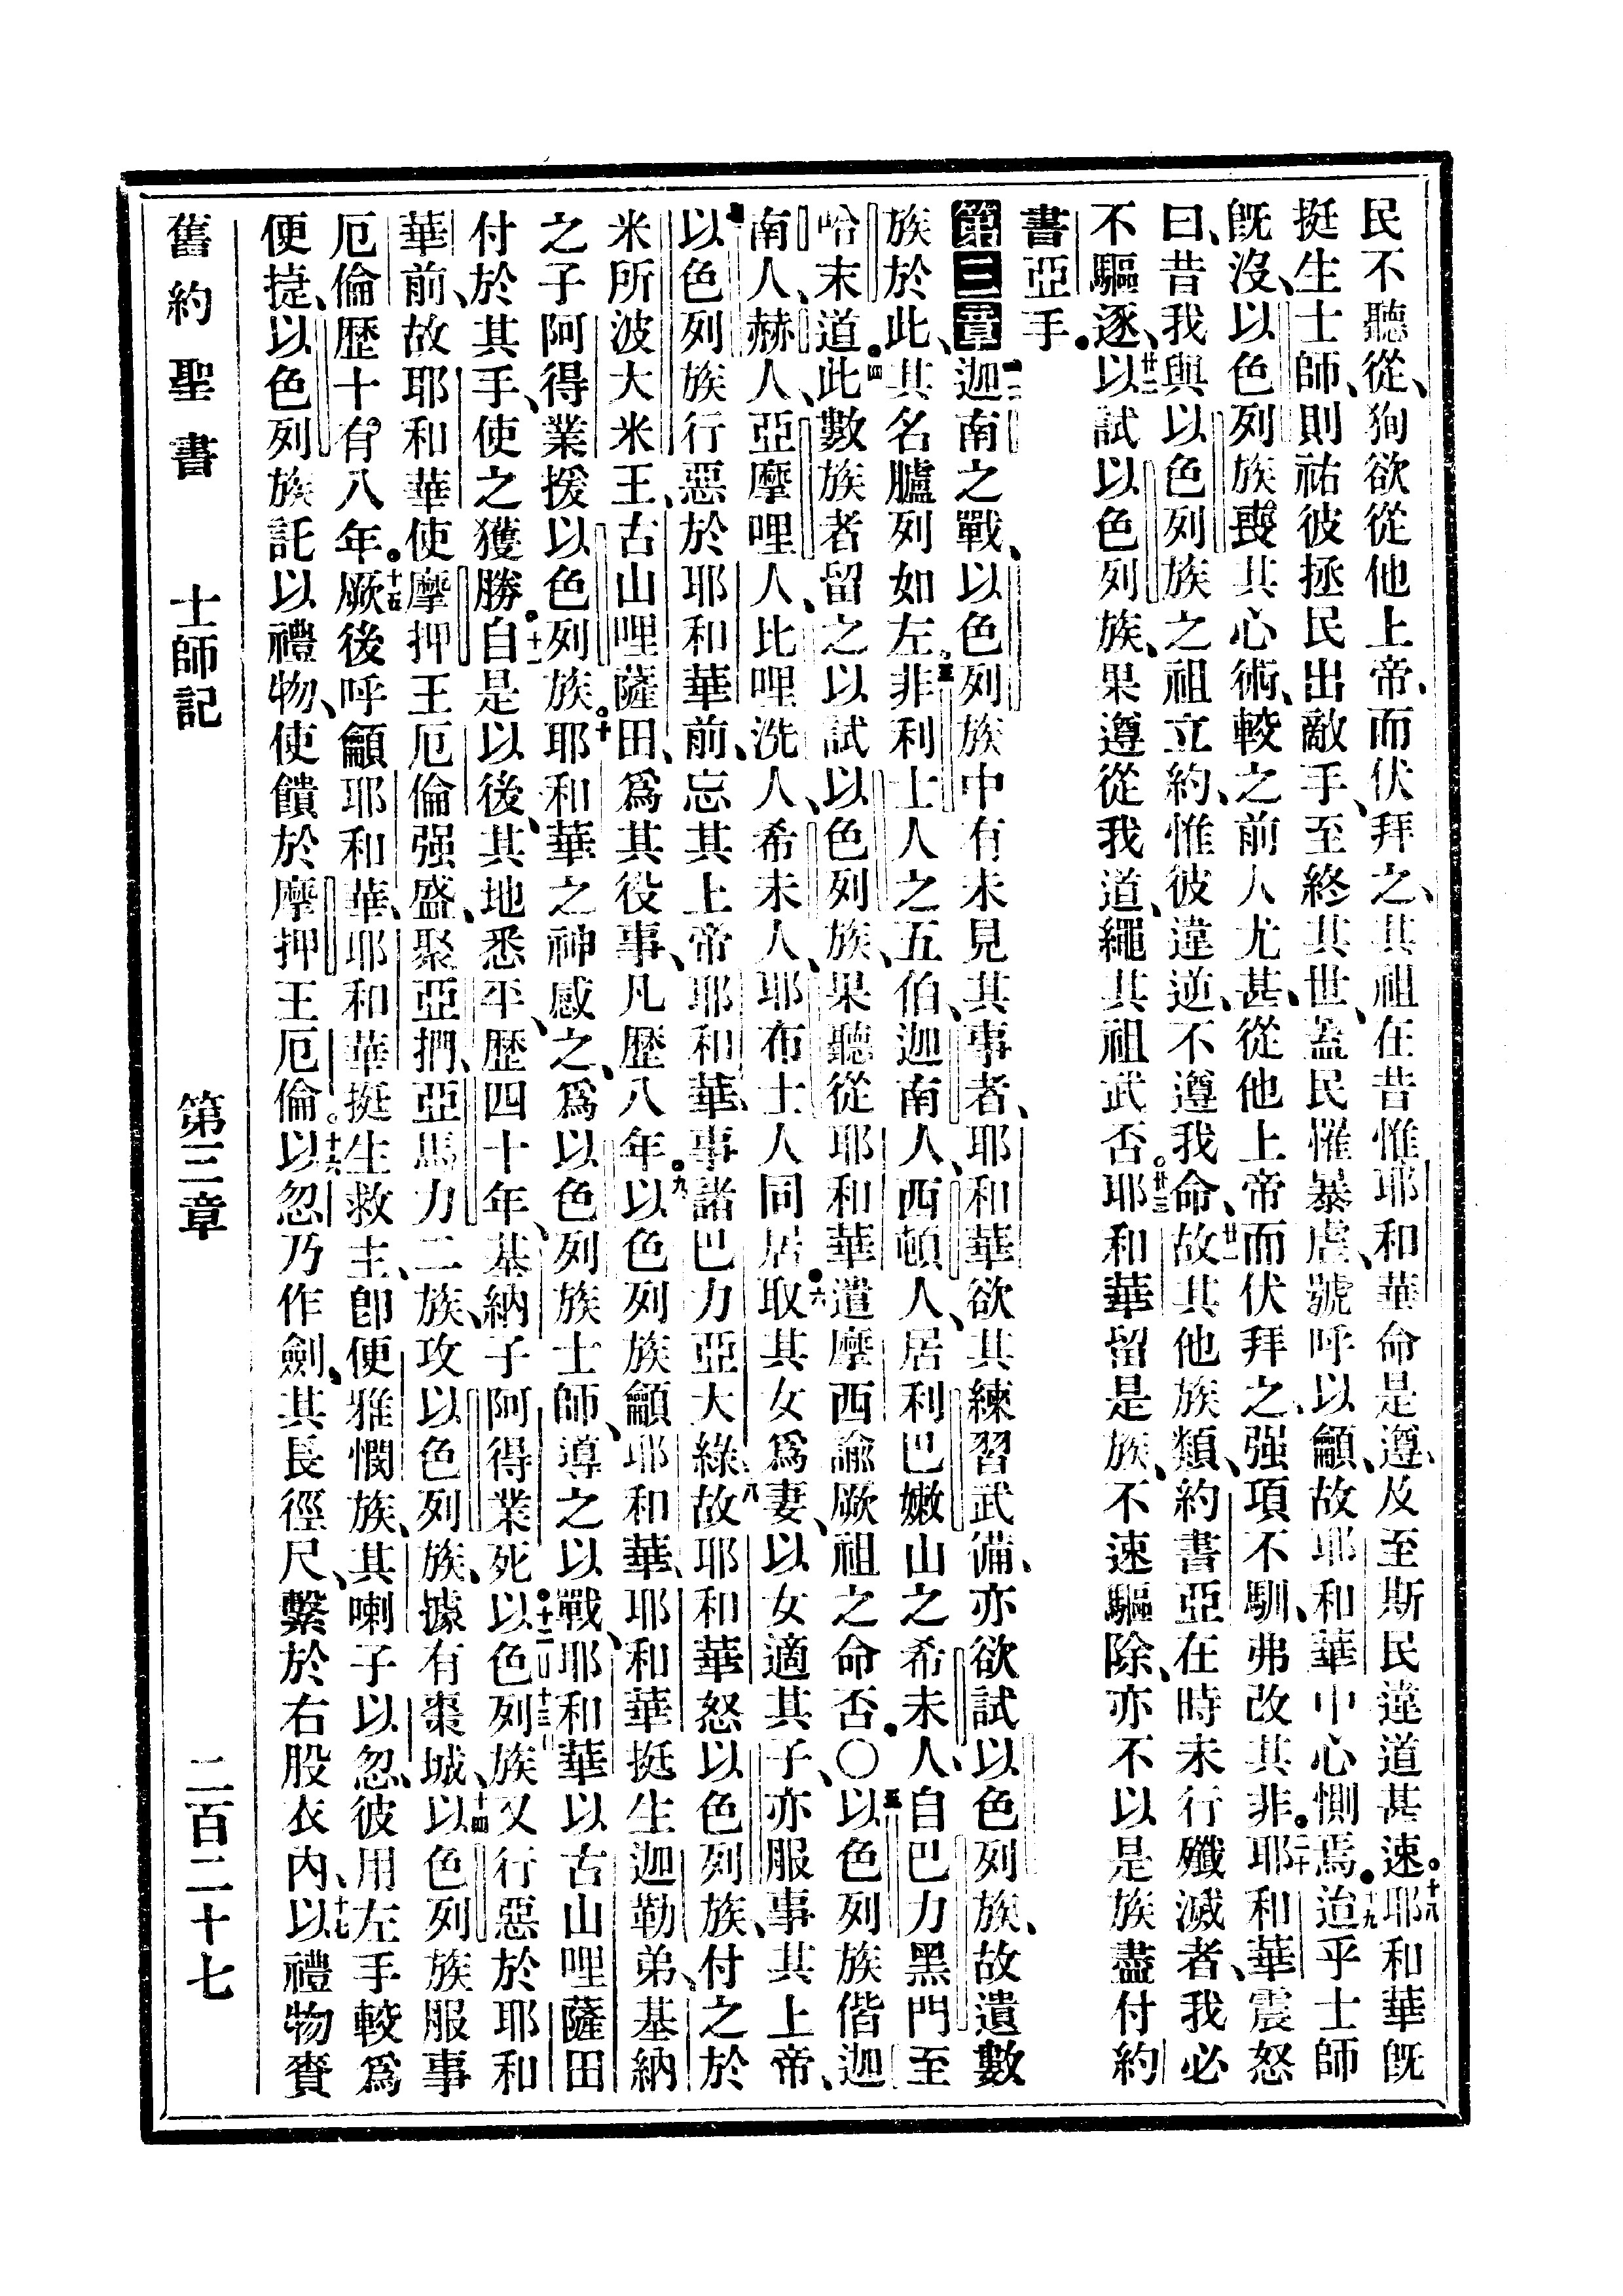 民不聽從、狥欲從他上帝、而伏拜之、其祖在昔惟耶和華命是遵、及至斯民違道甚速。十八耶和華旣
挺生士師、則祐彼拯民出敵手、至終其世、蓋民罹暴虐、號呼以籲、故耶和華中心惻焉。十九迨乎士師
旣沒、以色列族喪其心術、較之前人尤甚、從他上帝、而伏拜之、强項不馴、弗改其非。二十耶和華震怒
曰、昔我與以色列族之祖立約、惟彼違逆、不遵我命、廿一故其他族類、約書亞在時未行殲滅者、我必
不驅逐、廿二以試以色列族、果遵從我道、繩其祖武否。廿三耶和華留是族、不速驅除、亦不以是族盡付約
書亞手。
第三章 一二迦南之戰、以色列族中有未見其事者、耶和華欲其練習武備、亦欲試以色列族、故遺數
族於此、其名臚列如左、三非利士人之五伯、迦南人、西頓人、居利巴嫩山之希未人、自巴力黑門至
哈末道。四此數族者留之以試以色列族、果聽從耶和華遣摩西諭厥祖之命否。○五以色列族偕迦
南人、赫人、亞摩哩人、比哩洗人、希未人、耶布士人同居。六取其女爲妻、以女適其子、亦服事其上帝、
七以色列族行惡於耶和華前、忘其上帝耶和華、事諸巴力亞大綠、八故耶和華怒以色列族、付之於
米所波大米王、古山哩薩田、爲其役事、凡歷八年。九以色列族籲耶和華、耶和華挺生迦勒弟、基納
之子阿得業援以色列族。十耶和華之神感之、爲以色列族士師、導之以戰、耶和華以古山哩薩田
付於其手、使之獲勝。十一自是以後、其地悉平、歷四十年、基納子阿得業死。十二以色列族又行惡於耶和
華前、故耶和華使摩押王厄倫强盛、十三聚亞捫、亞馬力二族、攻以色列族、據有棗城、十四以色列族服事
厄倫歷十有八年。十五厥後呼籲耶和華、耶和華挺生救主、卽便雅憫族、其喇子以忽、彼用左手較爲
便捷、以色列族託以禮物、使饋於摩押王厄倫。十六以忽乃作劍、其長徑尺、繫於右股衣內、十七以禮物賚
舊約聖書 士師記 第三章 二百二十七